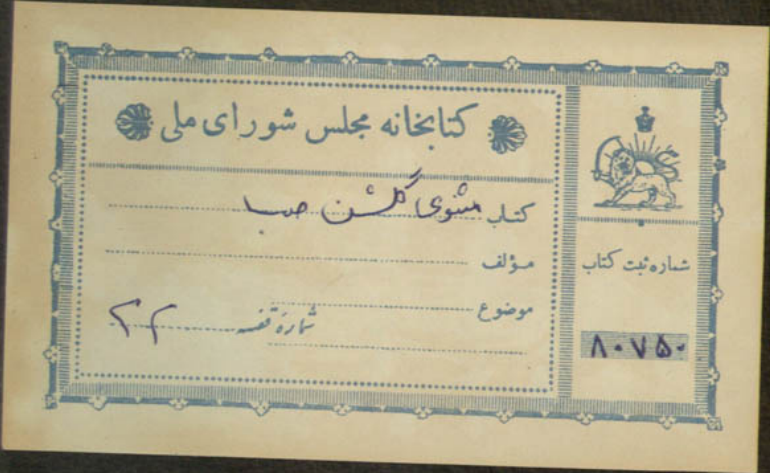 کتابخانه مجلس شورای ملی
کتاب مثنوی گلشن صبا
مؤلف
موضوع
شماره قفسه ۳۲
شماره ثبت کتاب
۸۰۷۵۰